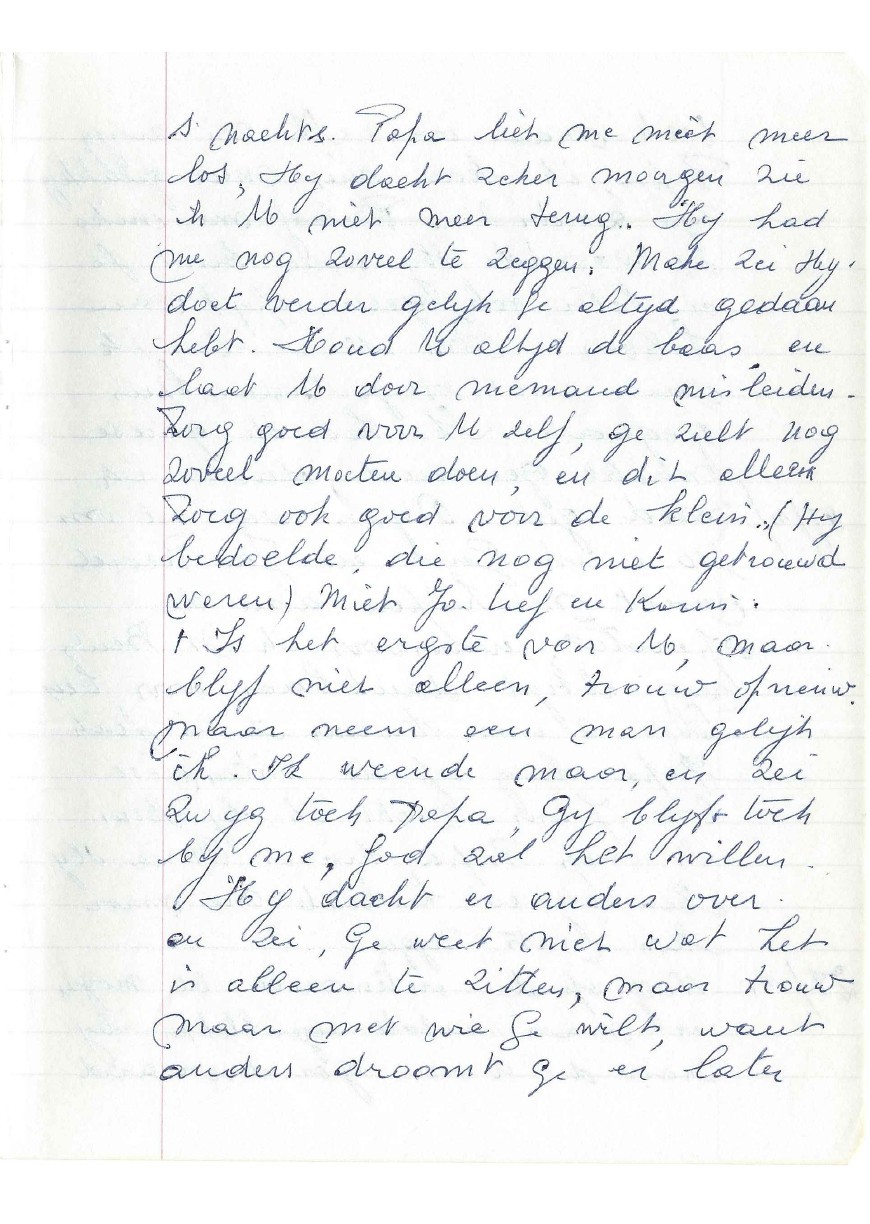 s' nachts. Papa liet me niet meer
los, Hy dacht zeker morgen zie
ik U niet meer terug.. Hy had
me nog zoveel te zeggen. Make zei Hy.
doet verder gelyk ge altyd gedaan
hebt. Houd U altyd de baas en
laat U door niemand misleiden.
Zorg goed voor U zelf, ge zielt nog
zoveel moeten doen, en dit alleen
Zorg ook goed voor de klein..( Hy
bedoelde, die nog niet getrouwd
weren) Miet Jo. lief en Konni.
t Is het ergste voor U, maar.
blyf niet alleen, trouw opnieuw.
maar neem een man gelyk
ik. Ik weende maar, en zei
zwyg toch Papa, Gy blyft toch
by me, God ziel het willen.
Hy dacht er anders over.
en zei, Ge weet niet wat het
is alleen te zitten, maar trouw
maar met wie Ge wilt, want
anders droomt ge er later